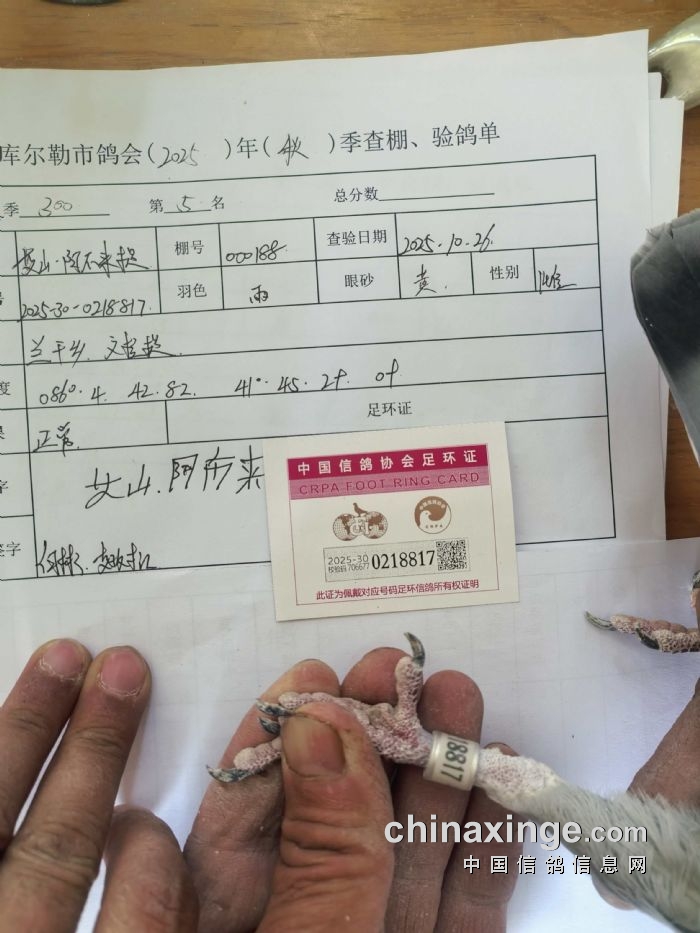 库尔勒市鸽会(2025 )年(秋 )季查棚、验鸽单
季 300 第 5 名 总分数
棚号 000188 查验日期 2025.10.26.
2025-30-0218817. 羽色 雨 眼砂 黄. 性别 雄
兰干乡.
度 086°. 4. 42. 82. 41°. 45. 2
果 正常. 足环证
字 山.阿布来
签字
中国信鸽协会足环证
CRPA FOOT RING CARD
2025-30
校验码 706677
0218817
此证为佩戴对应号码足环信鸽所有权证明
18817
chinaxinge.com
中国信鸽信息网